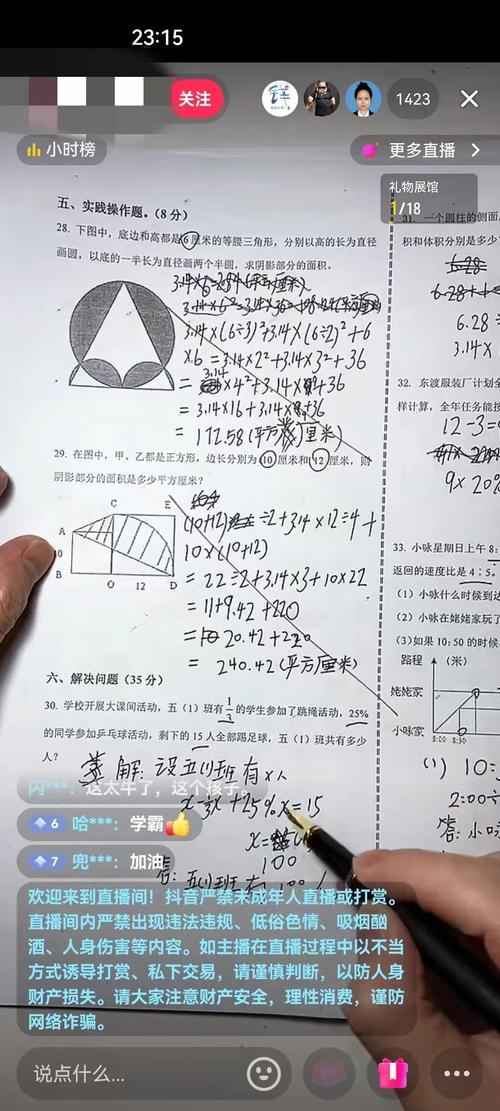 23:15
关注
1423
小时榜
更多直播
礼物展馆
1/18
五、实践操作题。(8 分)
28. 下图中，底边和高都是6厘米的等腰三角形，分别以高的长为直径
画圆，以底的一半长为直径画两个半圆，求阴影部分的面积。
3.14×(6÷3)²+3.14×(6÷2)²+6
×6=3.14×2²+3.14×3²+36
=3.14×4²+3.14×9²+36
=3.14×16+3.14×9+36
=172.58(平方厘米)
29. 在图中，甲、乙都是正方形，边长分别为10厘米和12厘米，则
阴影部分的面积是多少平方厘米？
C E
A
B
O 12 D
(10+12)÷2+3.14×12÷4+
10×(10+12)
=22÷2+3.14×3+10×22
=11+9.42+220
=20.42+220
=240.42(平方厘米)
六、解决问题（35 分）
30. 学校开展大课间活动，五（1）班有1/3的学生参加了跳绳活动，25%
的同学参加乒乓球活动，剩下的 15人全部踢足球，五（1）班共有多少
人？
解：设五(1)班有x人
x-⅓x+25%x=15
100
31. 一个圆柱的侧面
积和体积分别是多少
6.28
6.28
3.14
32. 东渡服装厂计划全
样计算，全年任务能按
12-3=
9×20%
33. 小咏星期日上午 8:
返回的速度比是 4∶5。
（1）小咏什么时候到达
（2）小咏在姥姥家玩了
（3）如果 10:50 的时候
路程 （米）
姥姥家
小咏家
8:00 8:30
(1) 10:
2:00
答:小咏
闪***：这太牛了，这个孩子。
6 哈***：学霸👍
7 兜***：加油
欢迎来到直播间！抖音严禁未成年人直播或打赏。
直播间内严禁出现违法违规、低俗色情、吸烟酗
酒、人身伤害等内容。如主播在直播过程中以不当
方式诱导打赏、私下交易，请谨慎判断，以防人身
财产损失。请大家注意财产安全，理性消费，谨防
网络诈骗。
说点什么...